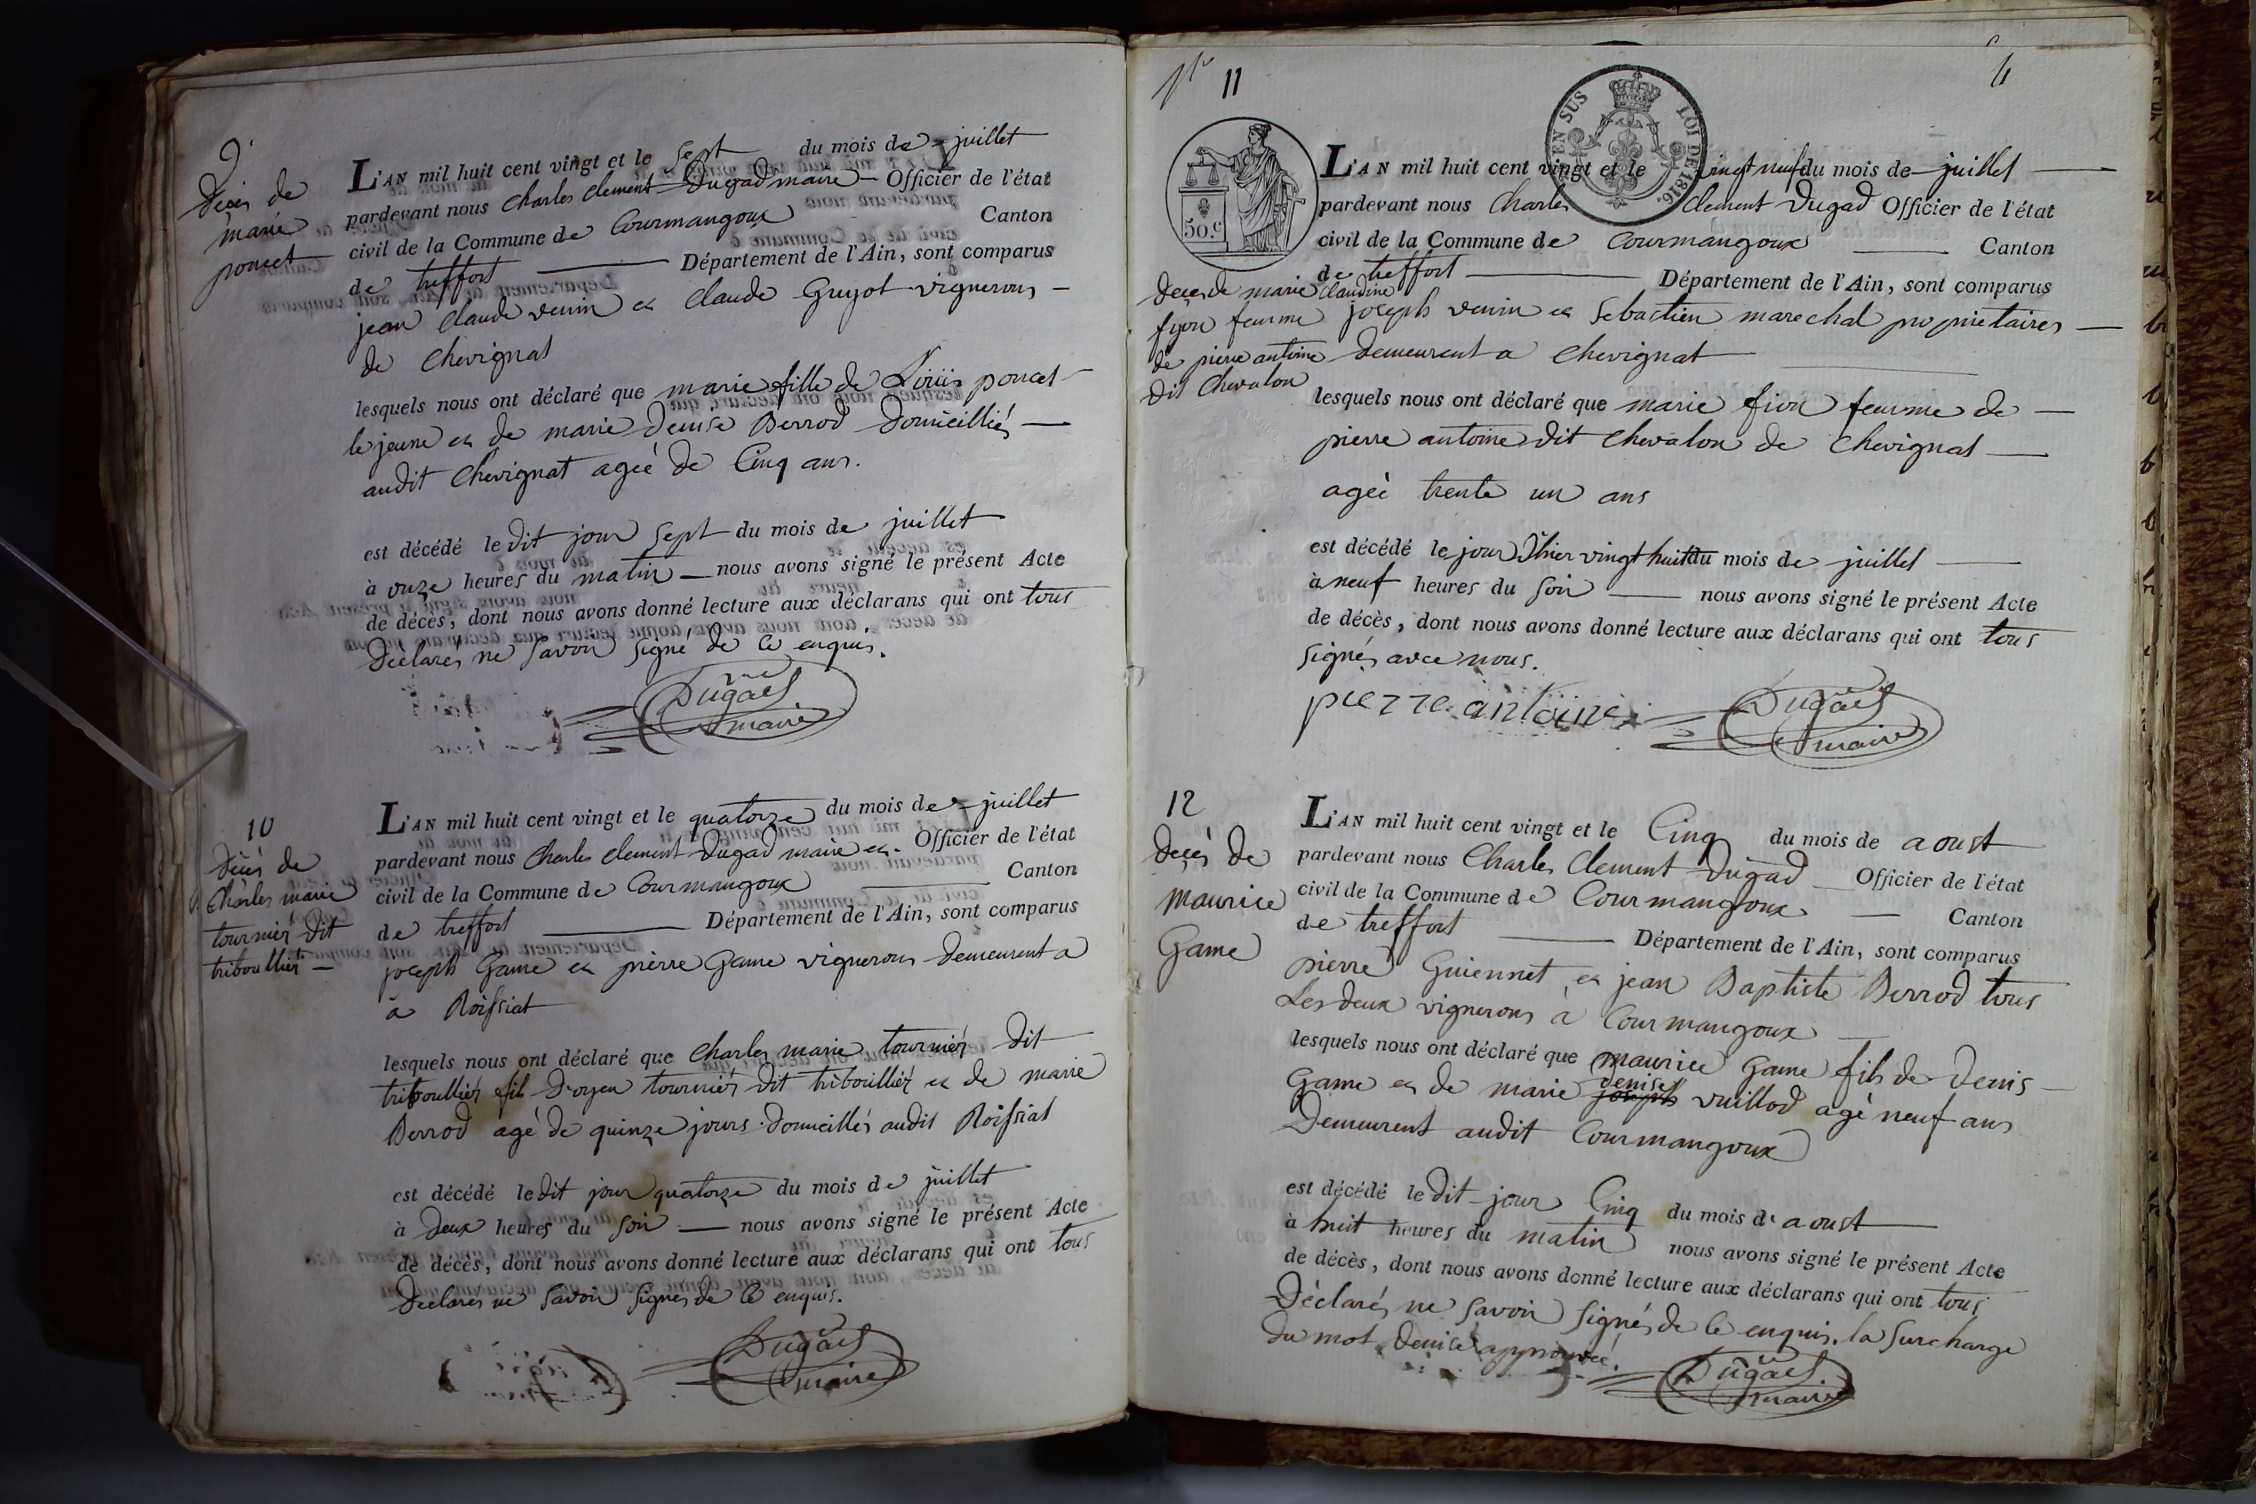 9
Décés de
marie
poncet
L'AN mil huit cent vingt et le sept du mois de juillet
pardevant nous Charles Clement Dugad maire Officier de l'état
civil de la Commune de Courmangoux Canton
de treffort Département de l'Ain, sont comparus
jean Claude vuin et Claude Guyot vignerons
de Chevignat
lesquels nous ont déclaré que marie fille de Louis poncet
le jeune et de marie Denise Berrod Domicilliés
audit Chevignat ageé de Cinq ans.
est décédé le dit jour sept du mois de juillet
à onze heures du matin nous avons signé le présent Acte
de décès, dont nous avons donné lecture aux déclarans qui ont tous
Déclarés ne savoir signé de ce enquis.
Dugad
maire
10
Décés de
Charles marie
tournier dit
triboullier
L'AN mil huit cent vingt et le quatorze du mois de juillet
pardevant nous Charles Clement Dugad maire et. Officier de l'état
civil de la Commune de Courmangoux Canton
de treffort Département de l'Ain, sont comparus
joseph Game et pierre Game vignerons Demeurent a
a Roissiat
lesquels nous ont déclaré que Charles marie tournier dit
triboullier fils d'oyen tournier dit triboullier et de marie
Berrod agé de quinze jours domicillés audit Roissiat
est décédé le dit jour quatorze du mois de juillet
à Deux heures du soir nous avons signé le présent Acte
de décès, dont nous avons donné lecture aux déclarans qui ont tous
Declarés ne savoir signés de ce enquis.
Dugad
maire
11
6
EN SUS LOI DE 1816.
50.c
Deces de marie Claudine
fyon femme
de pierre antoine
dit Chevalon
L'AN mil huit cent vingt et le vingt neuf du mois de juillet
pardevant nous Charles Clement Dugad Officier de l'état
civil de la Commune de Courmangoux Canton
de treffort Département de l'Ain, sont comparus
joseph vuin et Sebastien marechal propriétaires
demeurent a Chevignat
lesquels nous ont déclaré que marie fion femme de
pierre antoine dit Chevalon de Chevignat
ageé trente un ans
est décédé le jour d'hier vingt huit du mois de juillet
à neuf heures du soir nous avons signé le présent Acte
de décès, dont nous avons donné lecture aux déclarans qui ont tous
signés avec nous.
pierre antoine
Dugad
maire
12
Décés de
maurice
Game
L'AN mil huit cent vingt et le Cinq du mois de aoust
pardevant nous Charles Clement Dugad Officier de l'état
civil de la Commune de Courmangoux Canton
de treffort Département de l'Ain, sont comparus
pierre Guiennet et jean Baptiste Berrod tous
Les deux vignerons à Courmangoux
lesquels nous ont déclaré que maurice Game fils de Denis
Game et de marie joseph denise vuillod agé neuf ans
Demeurent audit Courmangoux
est décédé le dit jour Cinq du mois d' aoust
à huit heures du matin nous avons signé le présent Acte
de décès, dont nous avons donné lecture aux déclarans qui ont tous
Déclarés ne savoir signés de ce enquis. la surcharge
du mot Denise approuvée.
Dugad
maire